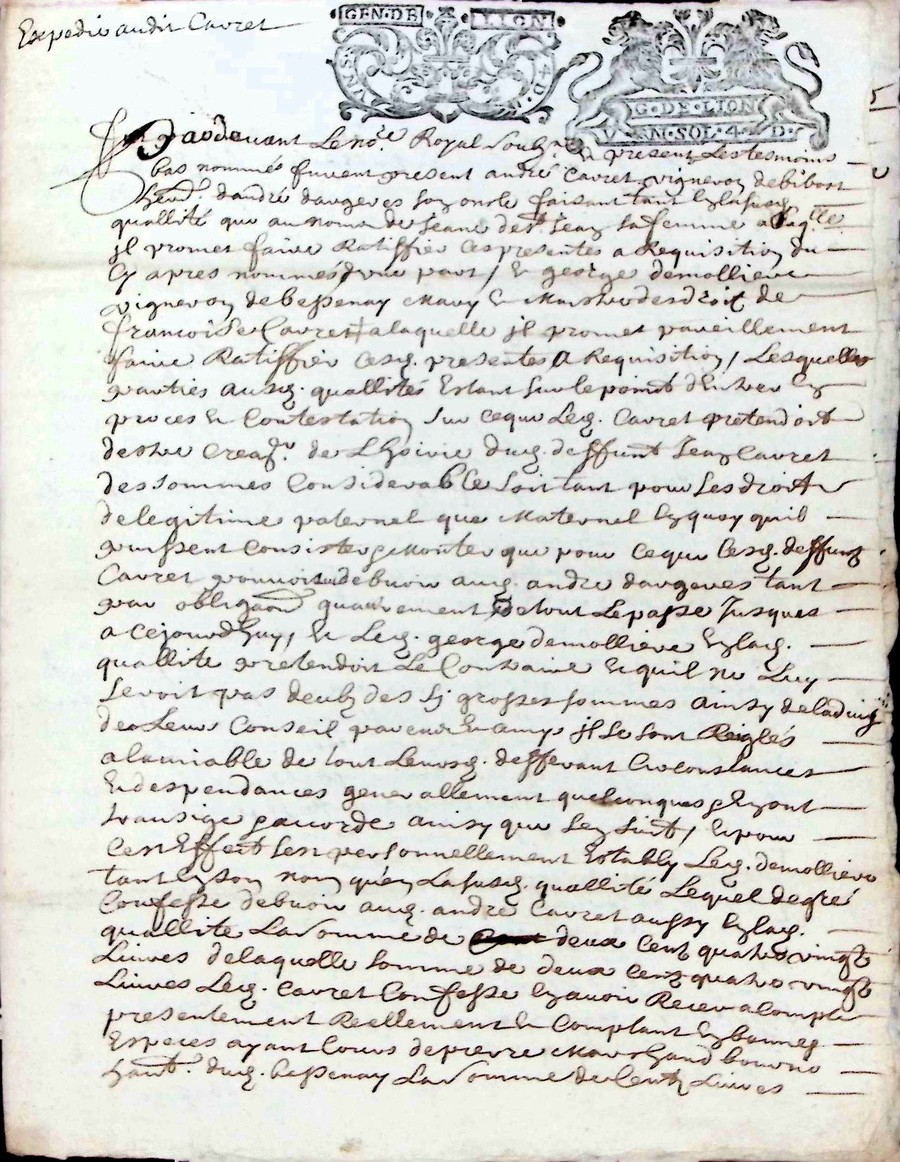 Expedie audit Cavret
GEN·DE LION·
VN·S 4·D·
G·DE·LION
V N·SOL·4 D·
Pardevant Le no.re Royal soubz.ne & present Les tesmoins
bas nommés furent present andré Cavret vigneron de bibost
herit. dandré dargeres son oncle faisant tant en la susd.
quallité que au nom de Jeane de sa femme a laq.lle
jl promet faire Ratiffier ces presentes a Requisition du
Cy apres nommes dune part / & george demolliere
vigneron de bessenay Mary & Maistre des droit de
francoise Cavret a laquelle jl promet pareillement
faire Ratiffier cesd. presentes a Requisition / Lesquelles
parties ausd. quallités Estant sur le point dEntrer En
proces & Contestation sur ce que Led. Cavret pretendoit
destre crea.r de Lhoirie dud. deffunt Jean Cavret
des sommes Considerable soit tant pour Les droit
de legitime paternel que Maternel En quoy quil
puissent consister & Monter que pour ce que Led. deffunt
Cavret pouvoit debvoir aud. andré dargeres tant
par obligaon quaurement de tout Le passe Jusques
a cejourdhuy / & Led. george demolliere En lad.
quallite pretendoit Le Contraire & quil ne Luy
devoit pas de des sj grosses sommes ainsy de ladvis
de Leur Conseil parens & amys jl se sont Reiglés
a lamiable de tout Leursd. differant circonstances
& despendances generallement quelconques & En ont
transigé & accordé ainsy que sen suit / & pour
cest Effect sest personnellement Estably Led. demolliere
tant En son nom quen La susd. quallité Lequel de gré
Confesse debvoir aud. andré Cavret aussy En lad.
quallite La somme de deux cent quatre vingt
Livres de laquelle somme de deux cent quatre vingt
Livres Led. Cavret Confesse En avoir Receu a Compte
presentement Reellement & Comptant En bonnes
Especes ayant Cours de pierre Marchand
hant. dud. bessenay La somme de Cent Livres